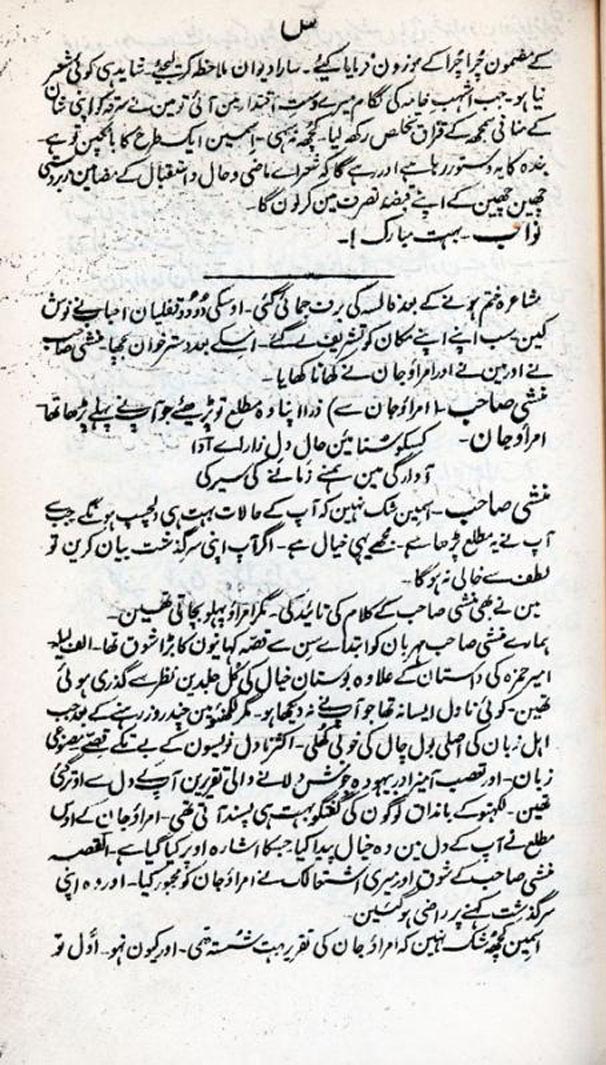 س
کے مضمون چُرا چُرا کے موزون فرمایا کیئے۔ سارا دیوان ملاحظہ کر لیجئے۔ شاید ہی کوئی شعر
نیا ہو۔ جب اشہبِ خامہ کی لگام میرے دستِ اقتدار مین آئی تو مین نے سرقہ کو اپنی شان
کے منافی سمجھ کے قزاق تخلص رکھ لیا۔ کُچھ نہ سہی۔ اسمین ایک طرح کا بانکپن تو ہے۔
بندہ کا یہ دستور رہا ہے اور رہے گا کہ شعراے ماضی و حال و استقبال کے مضامین زبردستی
چھین چھین کے اپنے قبضہ تصرف مین کر لون گا۔
نواب۔ بہت مبارک !۔
مشاعرہ ختم ہونے کے بعد فالسہ کی برف جمائی گئی۔ اوسکی دُو دُو قفلیان احبا نے نوش
کین۔ سب اپنے اپنے مکان کو تشریف لے گئے۔ اسکے بعد دستر خوان بچھا۔ منشی صاحب
نے اور مین نے اور امراؤ جان نے کھانا کھایا۔
منشی صاحب۔ (امراؤ جان سے) ذرا اپنا وہ مطلع تو پڑھیئے جو آپ نے پہلے پڑھا تھا
امراؤ جان۔ کسکو سُنائین حالِ دلِ زار اے ادا
آوارگی مین ہمنے زمانے کی سیر کی
منشی صاحب۔ اسمین شک نہین کہ آپ کے حالات بہت ہی دلچسپ ہونگے جب سے
آپ نے یہ مطلع پڑھا ہے۔ مجھے یہی خیال ہے۔ اگر آپ اپنی سرگذشت بیان کرین تو
لطف سے خالی نہ ہو گا۔
مین نے بھی منشی صاحب کے کلام کی تائید کی۔ مگر امراؤ پہلو بچاتی تھین۔
ہمارے منشی صاحب مہربان کو ابتداے سن سے قصّہ کہانیون کا بڑا شوق تھا۔ الف لیلہ
امیر حمزہ کی داستان کے علاوہ بوستان خیال کی کُل جلدین نظر سے گذری ہوئی
تھین۔ کوئی ناول ایسا نہ تھا جو آپ نے نہ دیکھا ہو۔ مگر لکھنؤ مین چند روز رہنے کے بعد جب
اہل زبان کی اصلی بول چال کی خوبی کھُلی۔ اکثر ناول نویسون کے بے تکے قصّے مصنوعی
زبان۔ اور تعصب آمیز اور بیہودہ جوش دلانے والی تقریرین آپ کے دل سے اوتر گئی
تھین۔ لکھنو کے بامذاق لوگون کی گفتگو بہت ہی پسند آتی تھی۔ امراؤ جان کے اوس
مطلع نے آپ کے دل مین وہ خیال پیدا کیا جسکا اشارہ اوپر کیا گیا ہے۔ القصہ
منشی صاحب کے شوق اور میری اشتعالک نے امراؤ جان کو مجبور کیا۔ اور وہ اپنی
سرگذشت کہنے پر راضی ہو گئین۔
اسمین کچھ شک نہین کہ امراؤ جان کی تقریر بہت شُستہ تھی۔ اور کیون نہو۔ اوّل تو